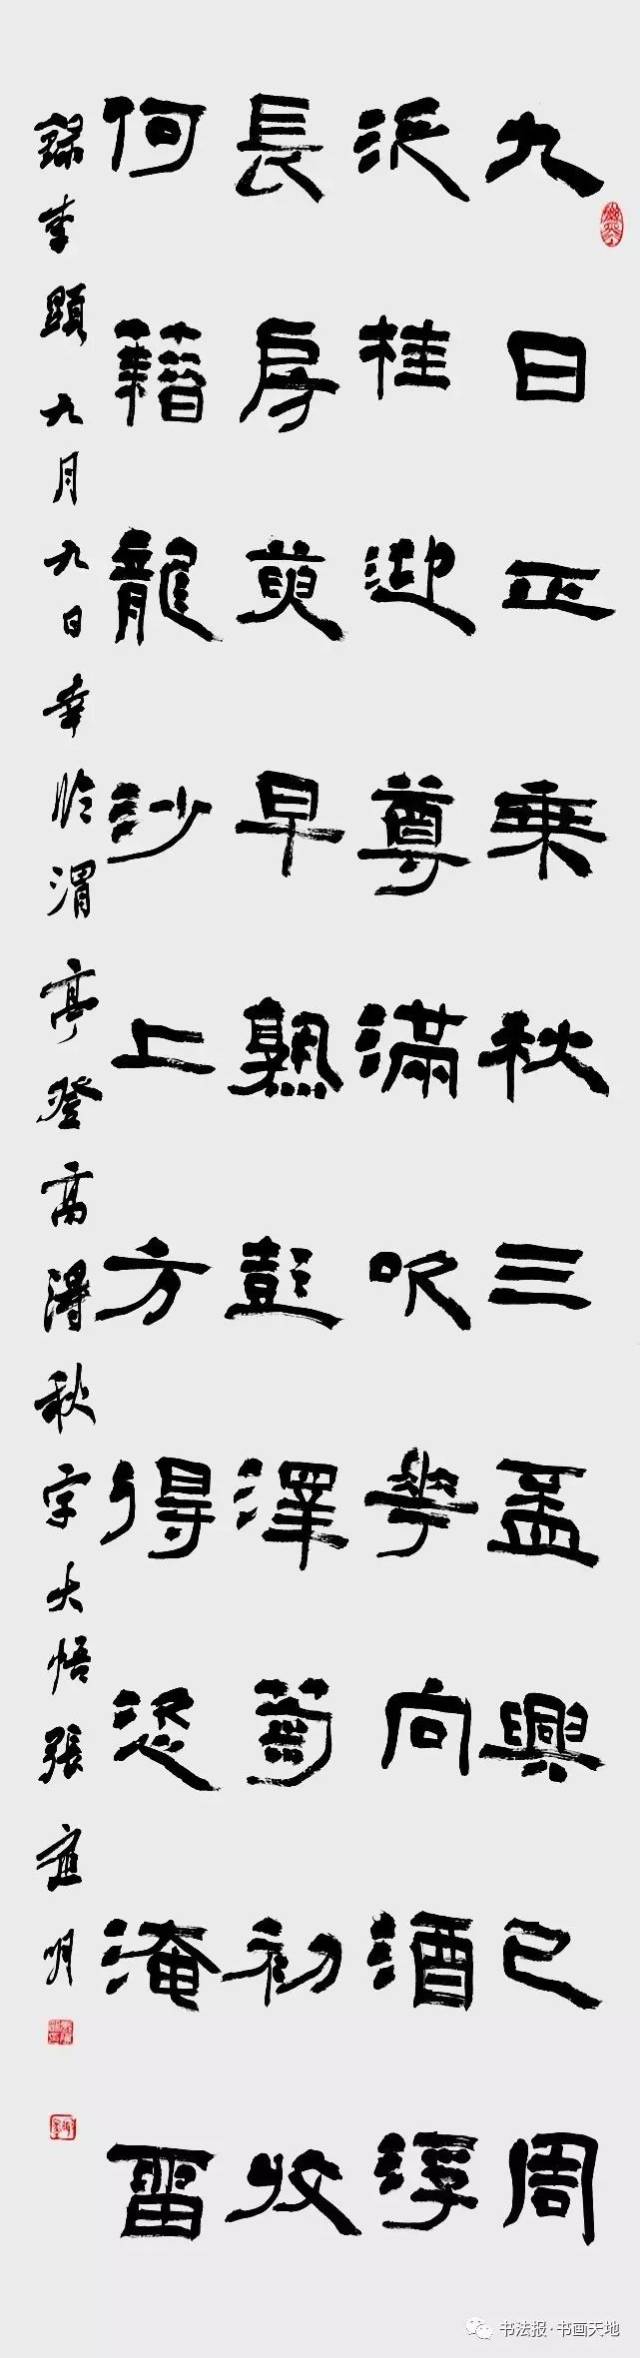 九日正乘秋三盃興已周
泛桂迎尊滿吹花向酒浮
長房萸早熟彭澤菊初收
何藉龍沙上方得恣淹留
錄李顯九月九日幸臨渭亭登高得秋字大悟張應明
书法报·书画天地